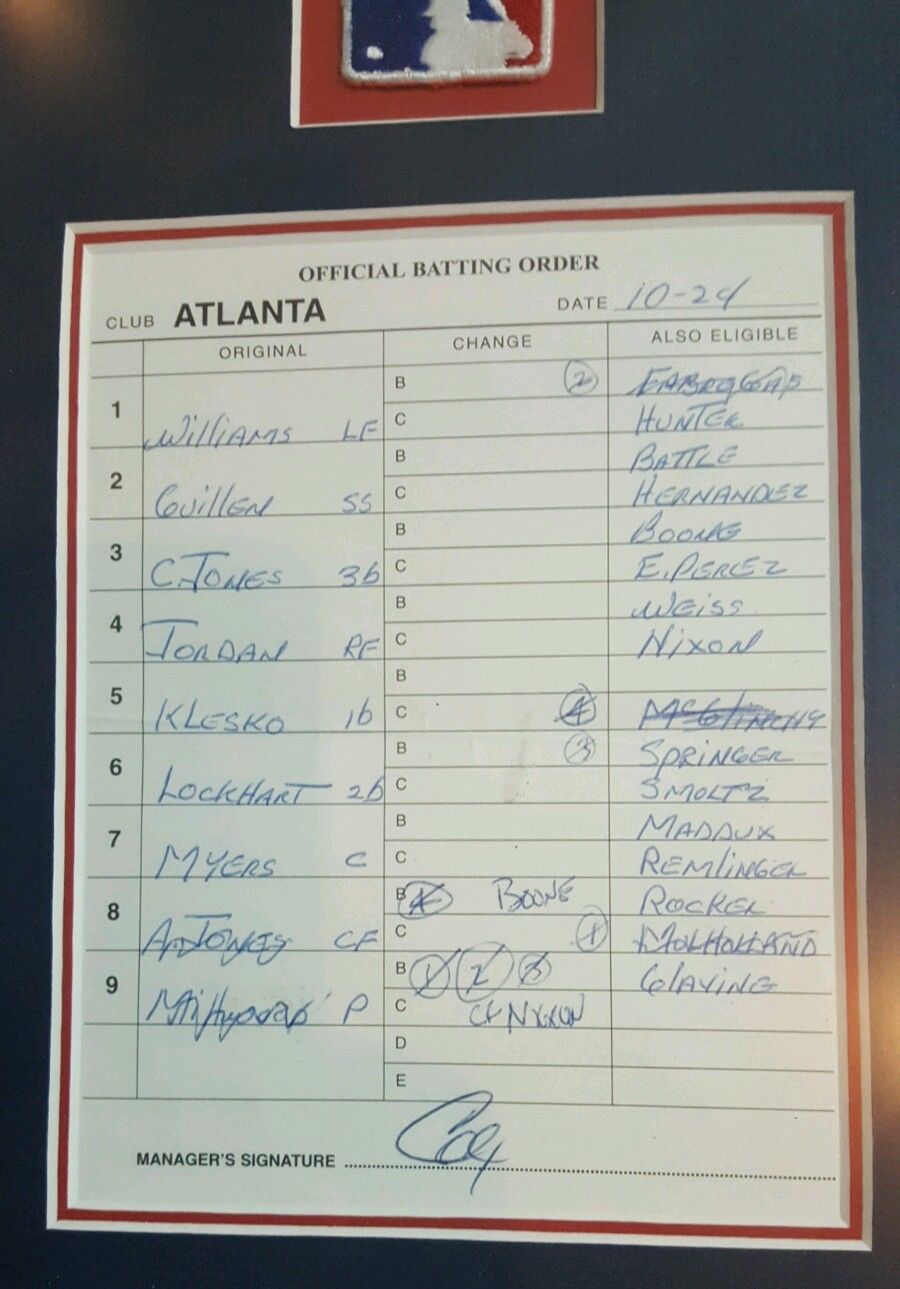 OFFICIAL BATTING ORDER
CLUB ATLANTA DATE 10-24
ORIGINAL CHANGE ALSO ELIGIBLE
1 Williams LF B ②
C HUNTER
2 Guillen SS B BATTLE
C HERNANDEZ
3 C. JONES 3b B BOONE
C E. PEREZ
4 JORDAN RF B WEISS
C NIXON
5 KLESKO 1b B
C ④
6 LOCKHART 2b B ③ SPRINGER
C SMOLTZ
7 MYERS C B MADDUX
C REMLINGER
8 A. JONES CF B BOONE ROCKER
C ① MULHOLLAND
9 P B ① ② ③ GLAVINE
C NIXON
D
E
MANAGER'S SIGNATURE Cox